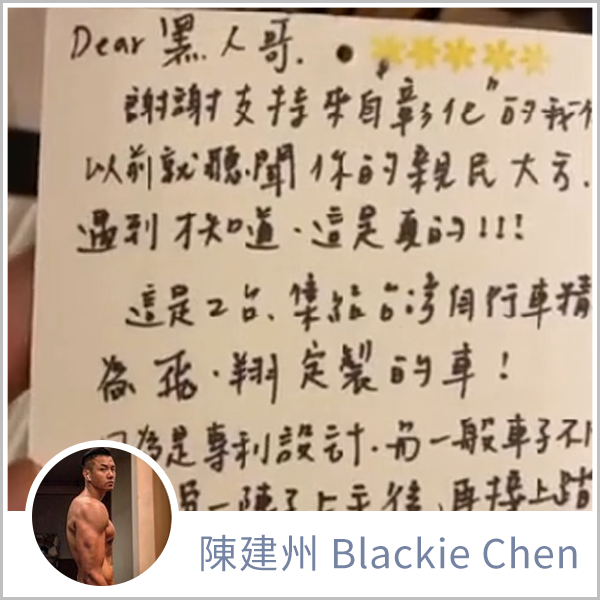 Dear 黑人哥.
謝謝支持來自"彰化"的我們
以前就聽聞你的親民大方.
遇到才知道.這是真的!!!
這是2台、集結台灣自行車精
為飛.翔定製的車!
因為是專利設計.有一般車子不
一陣子上手後,再接上踏
陳建州 Blackie Chen